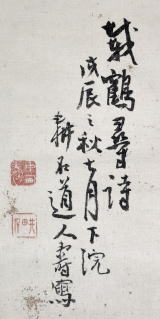 載鶴尋詩
戊辰之秋七月下浣
耕石道人壽寫